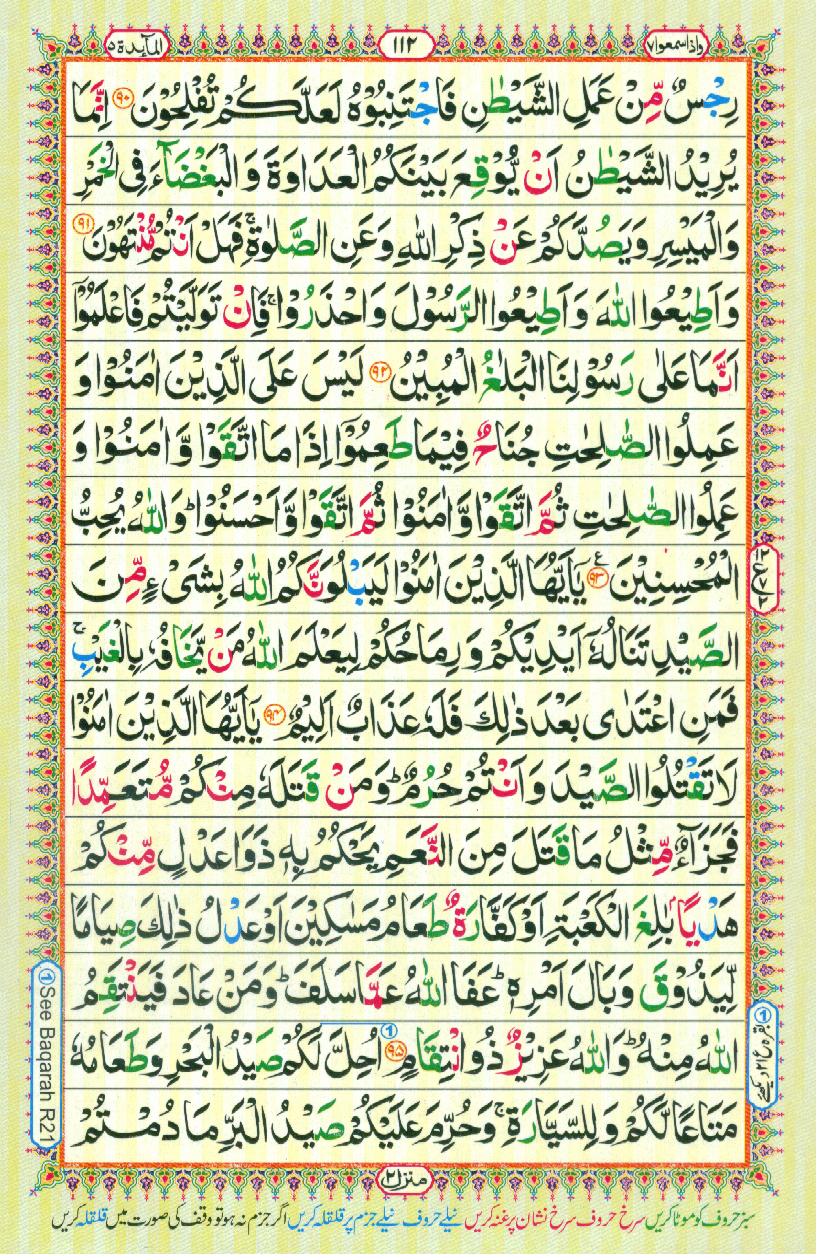 واذاسمعوا٧
١١٢
المآىٕدة٥
رِجْسٌ مِّنْ عَمَلِ الشَّيْطٰنِ فَاجْتَنِبُوْهُ لَعَلَّكُمْ تُفْلِحُوْنَ ﴿۹۰﴾ اِنَّمَا
يُرِيْدُ الشَّيْطٰنُ اَنْ يُّوْقِعَ بَيْنَكُمُ الْعَدَاوَةَ وَ الْبَغْضَآءَ فِى الْخَمْرِ
وَالْمَيْسِرِ وَيَصُدَّكُمْ عَنْ ذِكْرِ اللّٰهِ وَعَنِ الصَّلٰوةِ ۚ فَهَلْ اَنْتُمْ مُّنْتَهُوْنَ ﴿۹۱﴾
وَاَطِيْعُوا اللّٰهَ وَاَطِيْعُوا الرَّسُوْلَ وَاحْذَرُوْا ۚ فَاِنْ تَوَلَّيْتُمْ فَاعْلَمُوْۤا
اَنَّمَا عَلٰى رَسُوْلِنَا الْبَلٰغُ الْمُبِيْنُ ﴿۹۲﴾ لَيْسَ عَلَى الَّذِيْنَ اٰمَنُوْا وَ
عَمِلُوا الصّٰلِحٰتِ جُنَاحٌ فِيْمَا طَعِمُوْۤا اِذَا مَا اتَّقَوْا وَّاٰمَنُوْا وَ
عَمِلُوا الصّٰلِحٰتِ ثُمَّ اتَّقَوْا وَّاٰمَنُوْا ثُمَّ اتَّقَوْا وَّاَحْسَنُوْا ؕ وَاللّٰهُ يُحِبُّ
الْمُحْسِنِيْنَ ﴿۹۳﴾ ع يٰۤاَيُّهَا الَّذِيْنَ اٰمَنُوْا لَيَبْلُوَنَّكُمُ اللّٰهُ بِشَىْءٍ مِّنَ
الصَّيْدِ تَنَالُهٗۤ اَيْدِيْكُمْ وَرِمَاحُكُمْ لِيَعْلَمَ اللّٰهُ مَنْ يَّخَافُهٗ بِالْغَيْبِ ۚ
فَمَنِ اعْتَدٰى بَعْدَ ذٰلِكَ فَلَهٗ عَذَابٌ اَلِيْمٌ ﴿۹۴﴾ يٰۤاَيُّهَا الَّذِيْنَ اٰمَنُوْا
لَا تَقْتُلُوا الصَّيْدَ وَاَنْتُمْ حُرُمٌ ؕ وَمَنْ قَتَلَهٗ مِنْكُمْ مُّتَعَمِّدًا
فَجَزَآءٌ مِّثْلُ مَا قَتَلَ مِنَ النَّعَمِ يَحْكُمُ بِهٖ ذَوَا عَدْلٍ مِّنْكُمْ
هَدْيًۢا بٰلِغَ الْكَعْبَةِ اَوْ كَفَّارَةٌ طَعَامُ مَسٰكِيْنَ اَوْ عَدْلُ ذٰلِكَ صِيَامًا
لِّيَذُوْقَ وَبَالَ اَمْرِهٖ ؕ عَفَا اللّٰهُ عَمَّا سَلَفَ ؕ وَمَنْ عَادَ فَيَنْتَقِمُ
اللّٰهُ مِنْهُ ؕ وَاللّٰهُ عَزِيْزٌ ذُوانْتِقَامٍ ﴿۹۵﴾ ① اُحِلَّ لَكُمْ صَيْدُ الْبَحْرِ وَطَعَامُهٗ
مَتَاعًا لَّكُمْ وَلِلسَّيَّارَةِ ۚ وَحُرِّمَ عَلَيْكُمْ صَيْدُ الْبَرِّ مَا دُمْتُمْ
① See Baqarah R21
منزل٢
سبز حروف کو موٹا کریں سرخ حروف سرخ نشان پر غنہ کریں نیلے حروف نیلے جزم پر قلقلہ کریں اگر جزم نہ ہو تو وقف کی صورت میں قلقلہ کریں